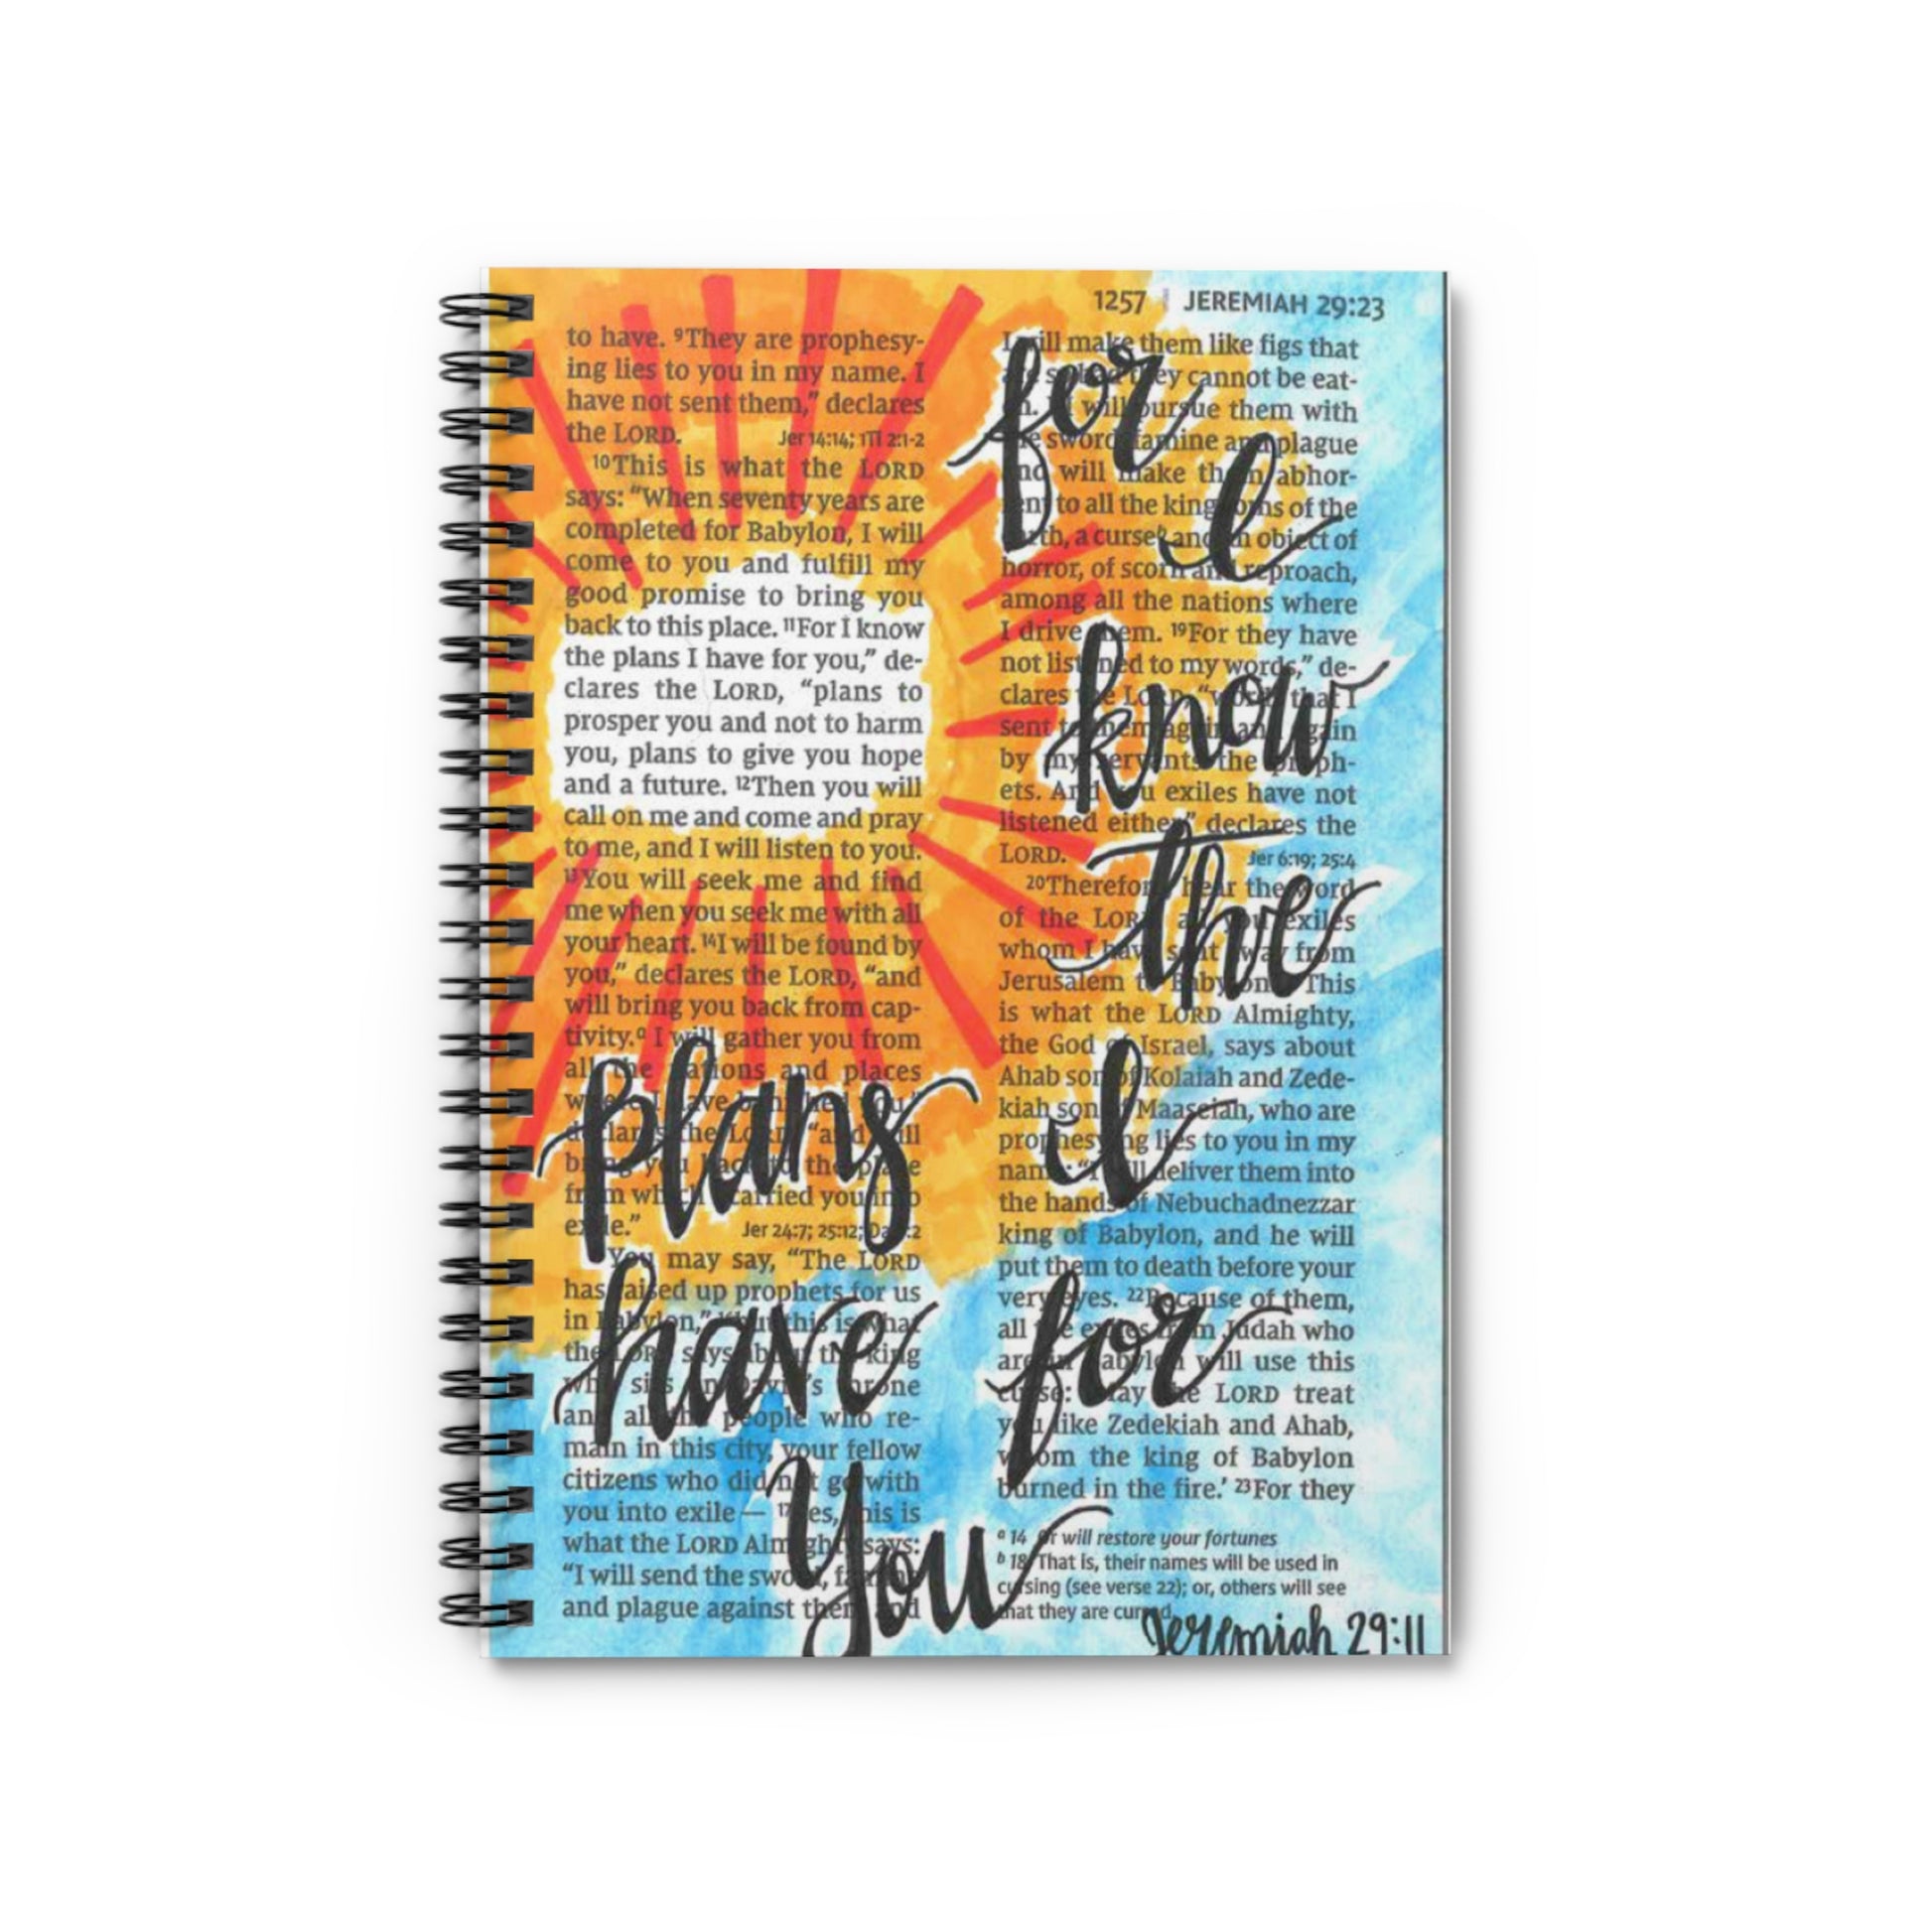 1257 | JEREMIAH 29:23
to have. ⁹They are prophesy-
ing lies to you in my name. I
have not sent them,” declares
the LORD. Jer 14:14; 1TI 2:1-2
¹⁰This is what the LORD
says: “When seventy years are
completed for Babylon, I will
come to you and fulfill my
good promise to bring you
back to this place. ¹¹For I know
the plans I have for you,” de-
clares the LORD, “plans to
prosper you and not to harm
you, plans to give you hope
and a future. ¹²Then you will
call on me and come and pray
to me, and I will listen to you.
¹³You will seek me and find
me when you seek me with all
your heart. ¹⁴I will be found by
you,” declares the LORD, “and
will bring you back from cap-
tivity.ᵃ I will gather you from
all the nations and places
where I have banished you,”
declares the LORD, “and will
bring you back to the place
from which I carried you into
exile.” Jer 24:7; 25:12;
You may say, “The LORD
has raised up prophets for us
in Babylon,” but this is what
the LORD says about the king
who sits on David’s throne
and all the people who re-
main in this city, your fellow
citizens who did not go with
you into exile— ¹⁷yes, this is
what the LORD Almighty says:
“I will send the sword, famine
and plague against them and
I will make them like figs that
are so bad they cannot be eat-
en. I will pursue them with
the sword, famine and plague
and will make them abhor-
rent to all the kingdoms of the
earth, a curseᵇ and an object of
horror, of scorn and reproach,
among all the nations where
I drive them. ¹⁹For they have
not listened to my words,” de-
clares the LORD, “words that I
sent to them again and again
by my servants the proph-
ets. And you exiles have not
listened either,” declares the
LORD. Jer 6:19; 25:4
²⁰Therefore, hear the word
of the LORD, all you exiles
whom I have sent away from
Jerusalem to Babylon. This
is what the LORD Almighty,
the God of Israel, says about
Ahab son of Kolaiah and Zede-
kiah son of Maaseiah, who are
prophesying lies to you in my
name: “I will deliver them into
the hands of Nebuchadnezzar
king of Babylon, and he will
put them to death before your
very eyes. ²²Because of them,
all the exiles from Judah who
are in Babylon will use this
curse: ‘May the LORD treat
you like Zedekiah and Ahab,
whom the king of Babylon
burned in the fire.’ ²³For they
ᵃ 14 Or will restore your fortunes
ᵇ 18 That is, their names will be used in
cursing (see verse 22); or, others will see
that they are cursed.
for
I
know
the
plans
I
have
for
You
Jeremiah 29:11